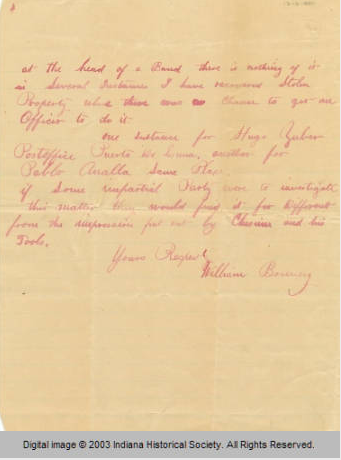 at the head of a Band there is nothing of it
in Several Instances I have recovered Stolen
Property when there was no Chance to get an
Officer to do it
one instance for Hugo Zuber
Postoffice Puerto de Luna, another for
Pablo Analla Same Place
if Some impartial Party were to investigate
this matter they would find it far Different
from the impression put out by Chisum and his
Tools.
Yours Respect
William Bonney
Digital image © 2003 Indiana Historical Society. All Rights Reserved.